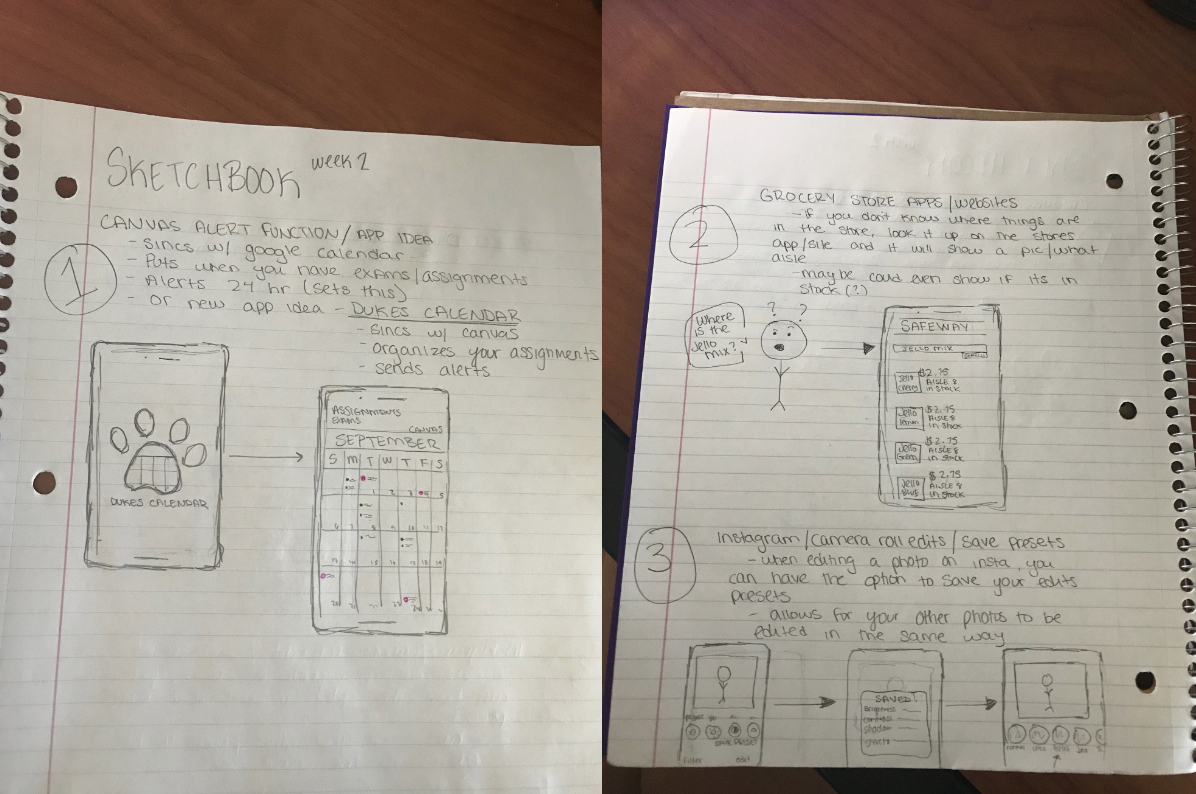 SKETCHBOOK week 2
CANVAS ALERT FUNCTION/APP IDEA
- Sincs w/ google calendar
- Puts when you have exams/assignments
1
- Alerts 24 hr (sets this)
- or new app idea - DUKES CALENDAR
- sincs w/ canvas
- organizes your assignments
- sends alerts
DUKES CALENDAR
ASSIGNMENTS
EXAMS
CANVAS
SEPTEMBER
S M T W T F S
GROCERY STORE APPS/websites
2
- if you don't know where things are
in the store, look it up on the stores
app/site and it will show a pic/what
aisle
- maybe could even show if its in
stock (?)
Where
is the
Jello
mix?
? ?
SAFEWAY
JELLO MIX
Jello
cherry
$2.75
AISLE 8
in Stock
Jello
lemon
$2.75
AISLE 8
in Stock
Jello
Green
$2.75
AISLE 8
in Stock
Jello
BLUE
$2.75
AISLE 8
in Stock
3
Instagram/camera roll edits/save presets
- when editing a photo on insta, you
can have the option to save your edits
presets
- allows for your other photos to be
edited in the same way
SAVE PRESET
Filter edit
SAVED!
Brightness
contrast
shadow
normal